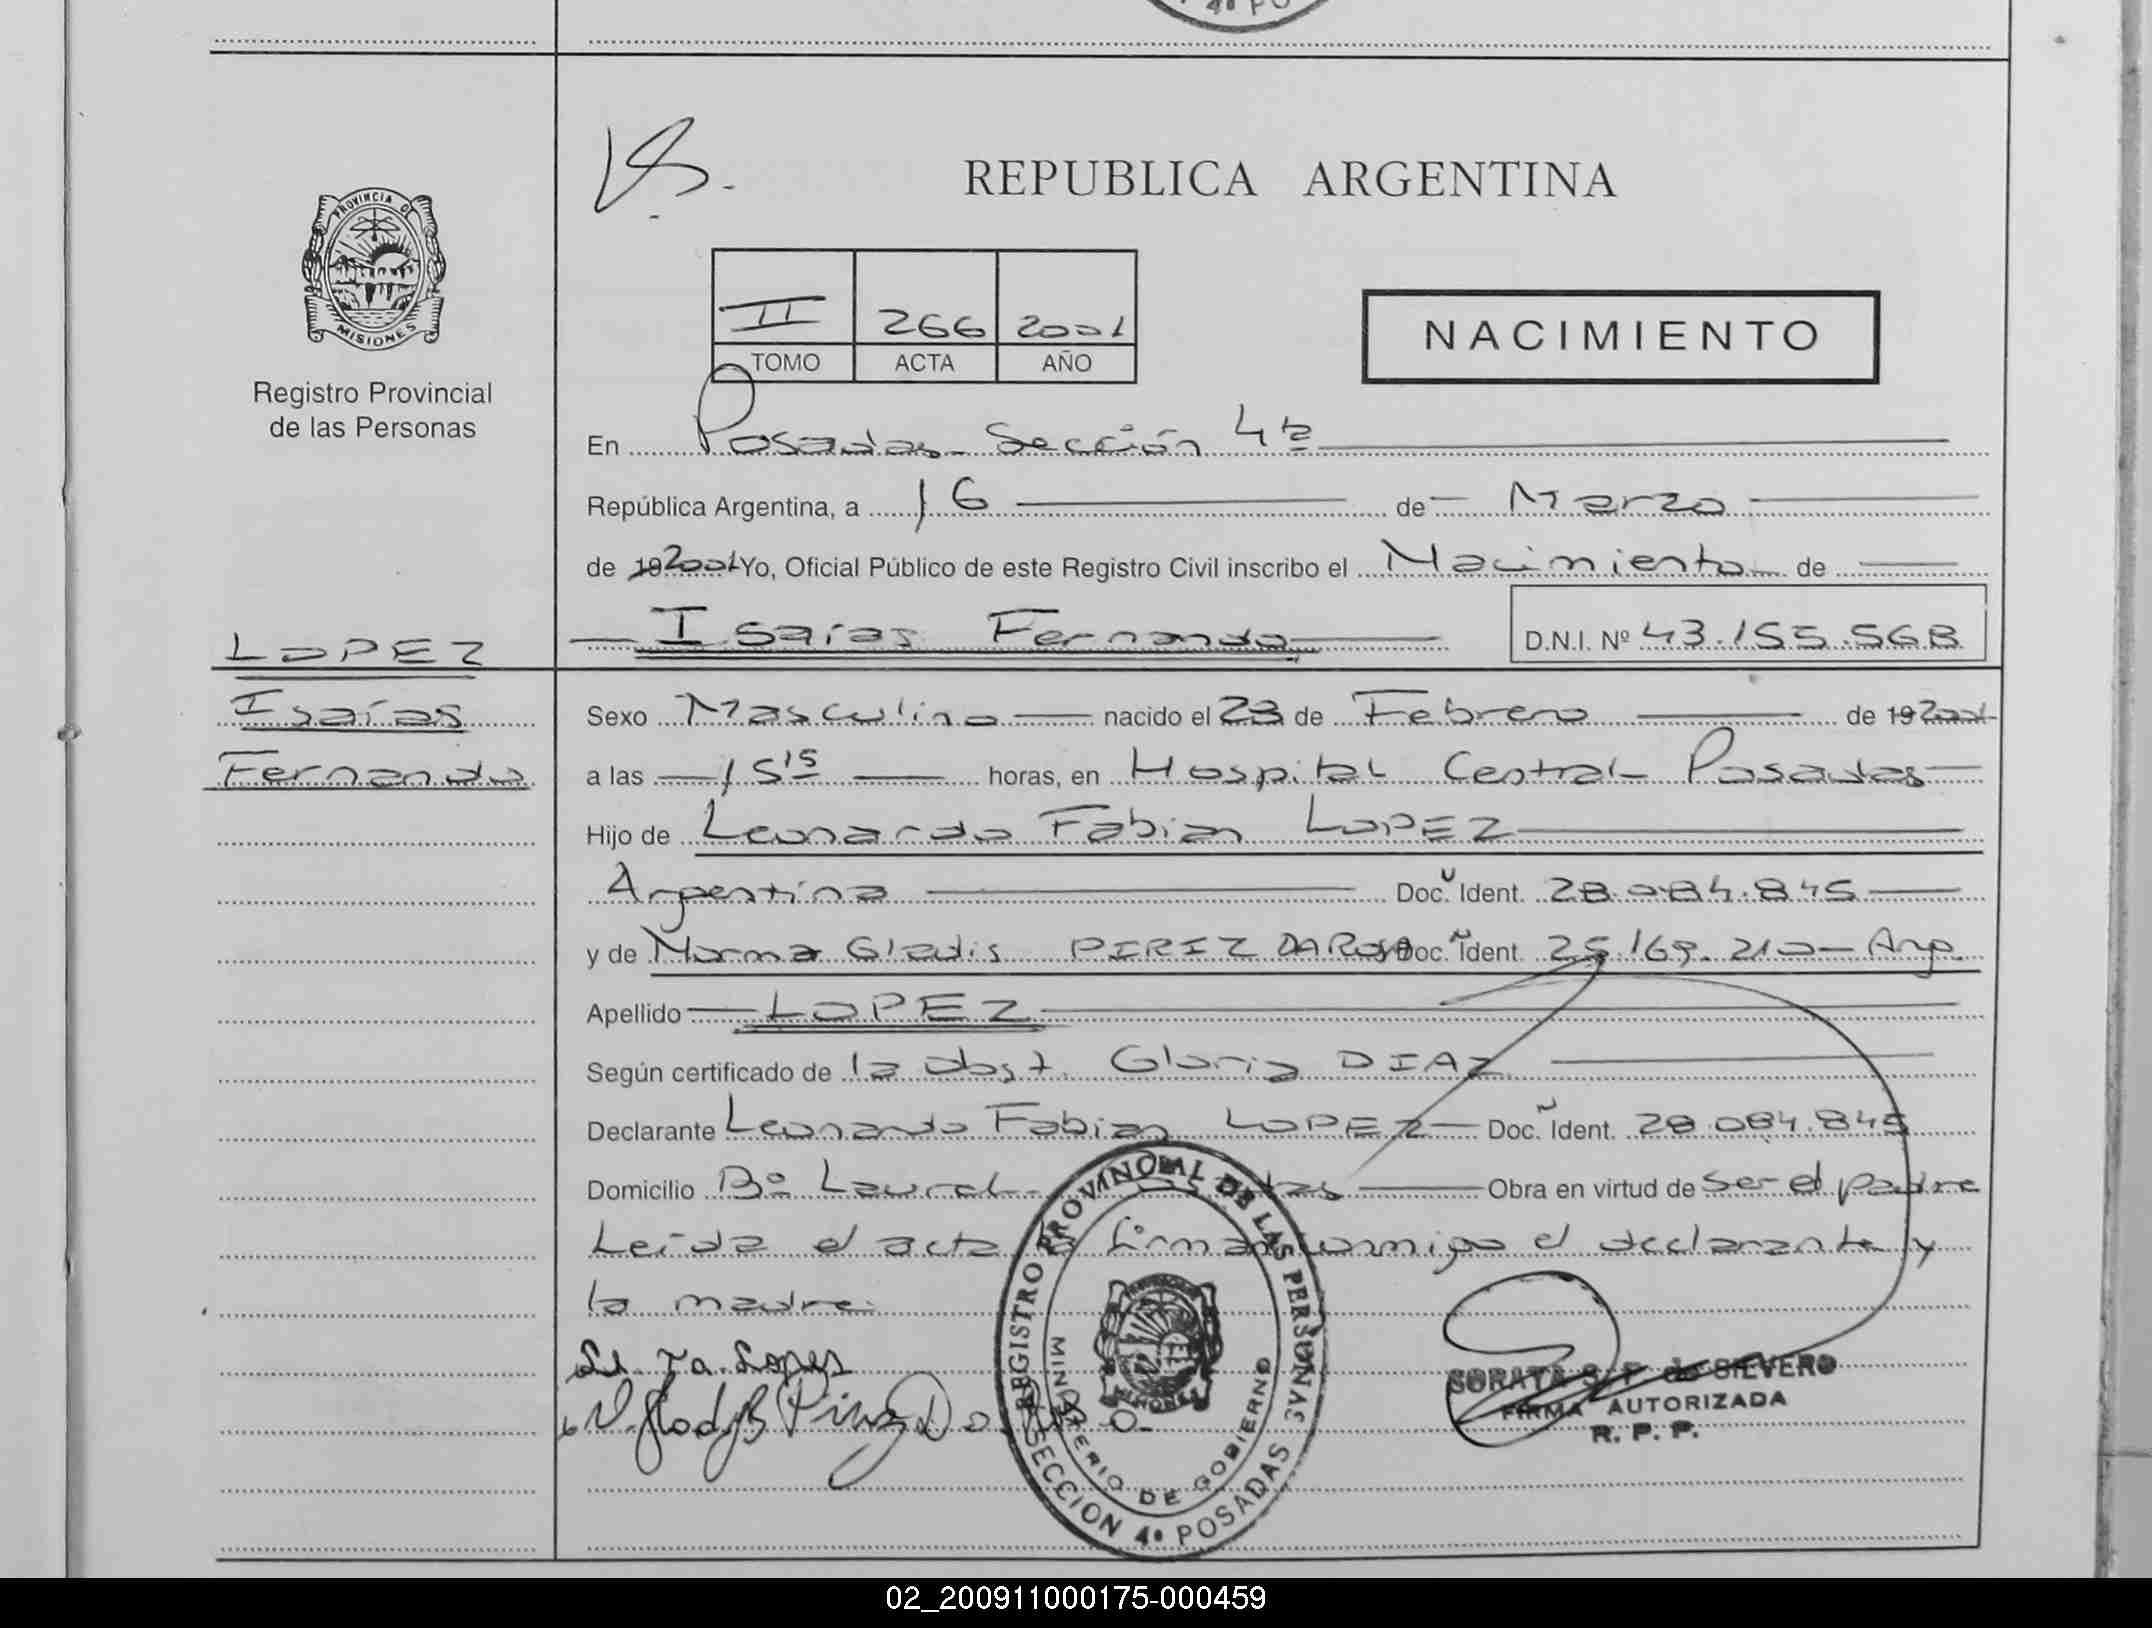 4ª PO
REPUBLICA ARGENTINA
PROVINCIA D
MISIONES
Registro Provincial
de las Personas
II 266 2001
TOMO ACTA AÑO
NACIMIENTO
En Posadas Sección 4ta
República Argentina, a 16 de Marzo
de 19 2001 Yo, Oficial Público de este Registro Civil inscribo el Nacimiento de
LOPEZ
Isaías Fernando D.N.I. Nº 43.155.568
Isaías
Fernando
Sexo Masculino nacido el 23 de Febrero de 19 2001
a las 15 15 horas, en Hospital Central Posadas
Hijo de Leonardo Fabian LOPEZ
Argentina Doc. Ident. 28.084.845
y de Norma Gladis PIREZ DA ROSA Doc. Ident. 25.169.210 - Arg.
Apellido LOPEZ
Según certificado de la obst. Gloria DIAZ
Declarante Leonardo Fabian LOPEZ Doc. Ident. 28.084.845
Domicilio Bº Laurel Obra en virtud de ser el padre
Leída el acta firman conmigo el declarante y
la madre.
REGISTRO PROVINCIAL DE LAS PERSONAS
MINISTERIO DE GOBIERNO
MISIONES
SECCION 4ª POSADAS
SORAYA S. F. de SILVERO
FIRMA AUTORIZADA
R. P. P.
02_200911000175-000459